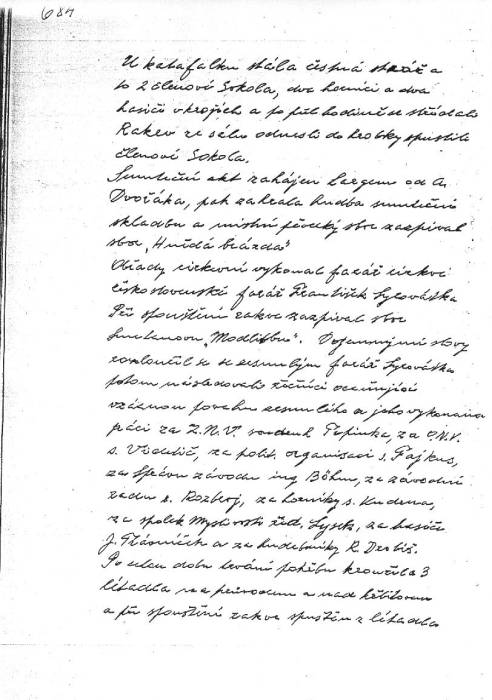 U katafalku stála čestná stráž a
to 2 členové Sokola, dva horníci a dva
hasiči v krojích a po půl hodině se střídali
Rakev ze sálu odnesli do hrobky spustili
členové Sokola.
Smuteční akt zahájen Largem od A.
Dvořáka, pak zahrála hudba smuteční
skladbu a místní pěvecký sbor zazpíval
sbor „Hnědá brázda"
Obřady církevní vykonal farář církve
československé farář František Lycováška
Při spouštění rakve zazpíval sbor
Smetanovu „Modlitbu". Dojemnými slovy
rozloučil se se zesnulým farář Lycováška
potom následovali řečníci oceňující
vzácnou povahu zesnulého a jeho vykonanou
práci za Z.N.V. soudruh Pepinka, za O.N.V.
s. za polit. organisaci s. Fajkus,
za správu závodu ing Böhm, za závodní
radu s. Rozbroj, za horníky s. Kudena,
za spolek řed. Lysek, za hasiče
J. Třásníček a za hudebníky R. Drobiš.
Po celou dobu trvání pohřbu kroužila 3
letadla nad průvodem a nad hřbitovem
a při spouštění rakve spuštěn z letadla